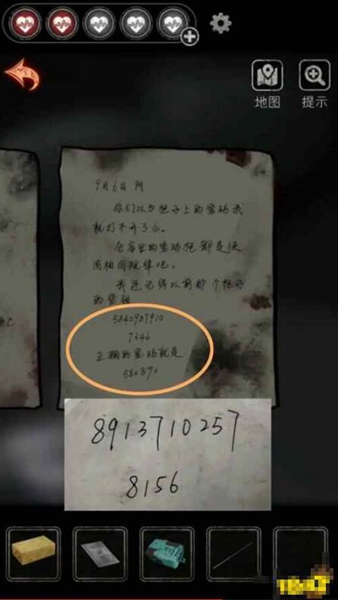 地图
提示
9月6日 阴
你们以为柜子上的密码我
就打不开了么。
仓库里的密码柜都是使
用相同规律吧。
我还记得以前那个柜子
的密码
7346
正确的密码就是
8913710257
8156